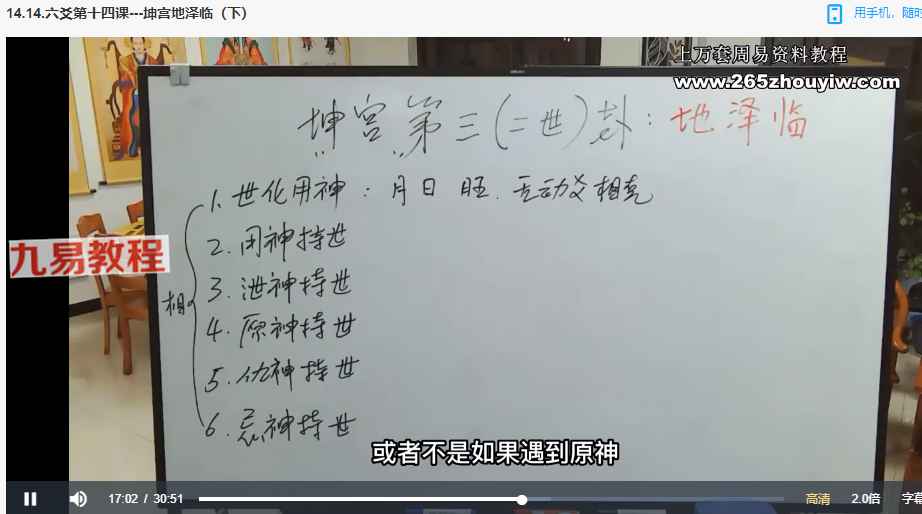 14.14.六爻第十四课---坤宫地泽临（下）
用手机，随时
上万套周易资料教程
www.265zhouyiw.com
坤宫第三(二世)卦：地泽临
1.世化用神：月日 旺.无动爻相克
2.用神持世
九易教程
3.泄神持世
相
4.原神持世
5.仇神持世
6.忌神持世
或者不是如果遇到原神
17:02 / 30:51
高清
2.0倍
字幕